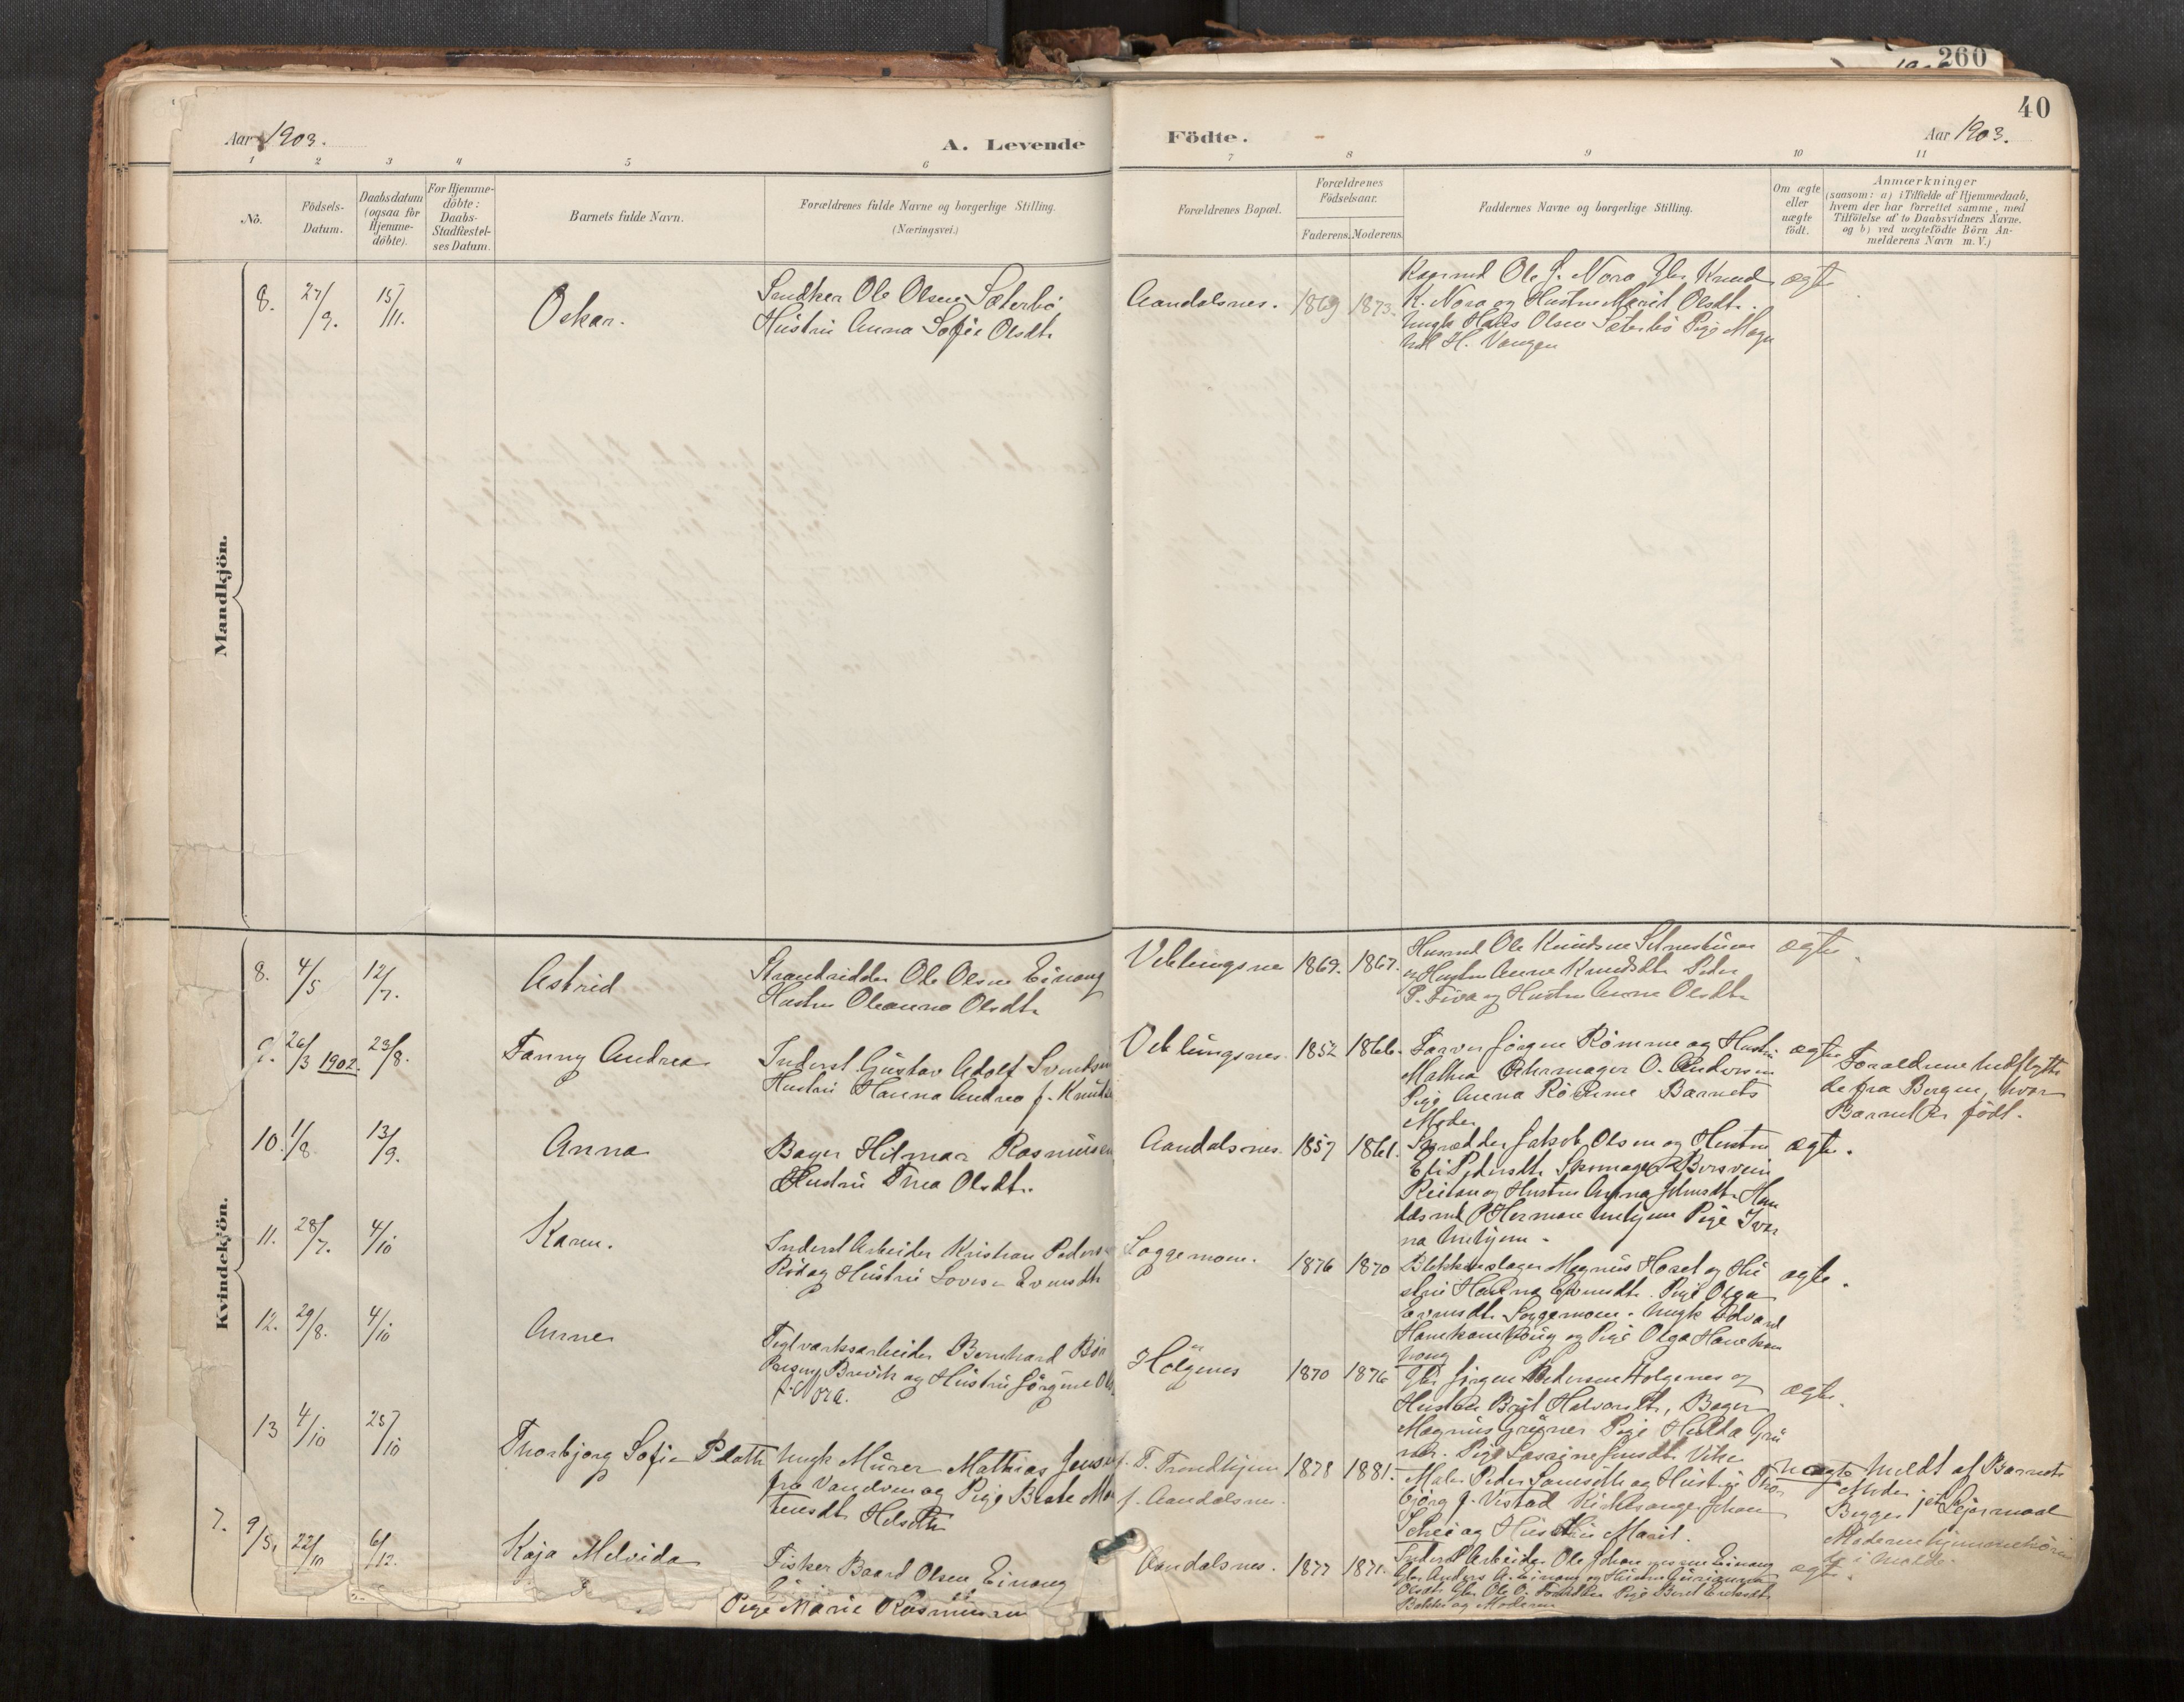 260
40
Aar 1903.
A. Levende
Födte.
Aar 1903.
1 2 3 4 5 6 7 8 9 10 11
No.
Födsels-
Datum.
Daabsdatum
(ogsaa för
Hjemme-
döbte).
For Hjemme-
döbte:
Daabs-
Stadfæstel-
ses Datum.
Barnets fulde Navn.
Forældrenes fulde Navne og borgerlige Stilling.
(Næringsvei.)
Forældrenes Bopæl.
Forældrenes
Födselsaar.
Faderens. Moderens.
Faddernes Navne og borgerlige Stilling.
Om ægte
eller
uægte
födt.
Anmærkninger
(saasom: a) i Tilfælde af Hjemmedaab,
hvem der har forrettet samme, med
Tilföielse af to Daabsvidners Navne.
og b) ved uægtefödte Börn An-
melderens Navn m. V.)
Mandkjön.
8. 27/9. 15/11. Oskar.
Ole Olsen Sæterbö
Hustru Anna Sofie Olsdt.
Aandalsnes. 1869 1873.
Ole J. Nora Gbr. Knud
K. Nora og Hustru Marit Olsdt.
Ungk. Hans Olsen Sæterbö Pige Magn
hild H. Vengen
ægte
Kvindekjön.
8. 4/5 12/7. Astrid
Strandsidder Ole Olsen Einang
Hustru Oleanna Olsdtr.
Veblungsnes 1869. 1867.
Husmd Ole Knudsen Setnestuen
og Hustru Anne Knudsdtr. Peder
P. Fiva og Hustru Anne Olsdtr.
ægte.
9. 26/3 1902. 23/8. Fanny Andrea
Inderst Gustav Adolf Svendsen
Hustru Hanna Andrea f. Knuds
Veblungsnes. 1852 1866.
Farver Jörgen Römme og Hustru
Mathea O. Andersen
Pige Anna Römme Barnets
Moder
ægte
Forældrene indflytte
de fra Bergen, hvor
Barnet er födt.
10. 1/8 13/9. Anna
Bager Hilmar Rasmussen
Hustru Thea Olsdt.
Aandalsnes. 1857 1861.
Skrædder Jakob Olsen og Hustru
Eli Pedersdt. Skomager Bersvein
Reitan og Hustru Anna Johnsdt. Han
delsmd P. Herman Unhjem Pige Ivar
na Unhjem.
ægte.
11. 28/7. 4/10 Karen.
Inderst Arbeider Kristian Peders
Röd og Hustru Lovise Evensdtr
Soggemoen. 1876 1870
Blikkenslager Magnus Horset og Hu
stru Hanna Evensdt. Pige Olga
Evensdt. Soggemoen. Ungk. Edvard
Hanekamhoug og Pige Olga Hanekam
houg
ægte.
12. 29/8. 4/10 Anne
Teglværksarbeider Bernhard
Brevik og Hustru Jörgine Ols
Holgenes 1870 1876
Gbr. Jörgen Pedersen Holgenes og
Hustru Brit Halvorsdt., Bager
Magnus Grüner Pige Hulda Grü
ner. Pige Jensdt. Vike
ægte.
13 4/10 25/10 Thorbjørg Sofie Plath
Ungk. Murer Mathias Jensen
fra og Pige Beate Mor
tensdt. Helseth
f. T. Trondhjem
f. Aandalsnes. 1878 1881.
Maler Peder og Hustru Thor
björg f. Vestad Kirkesanger Johan
Schei og Hustru Marit.
uægte
Meldt af Barnets
Moder
Begges 1ste Leiermaal
Moderen hjemmehören
de i Molde.
7. 9/5. 22/10 6/12. Kaja Melvida
Fisker Baard Olsen Einang
Pige Marie Rasmussen
Aandalsnes. 1877 1871.
Inderst Arbeider Ole Johannessen Einang
Gbr. Anders A. Einang og Hustru
Olsdtr. Gbr. Ole O. Pige Berit Eriksdtr.
og Moderen
ægte.